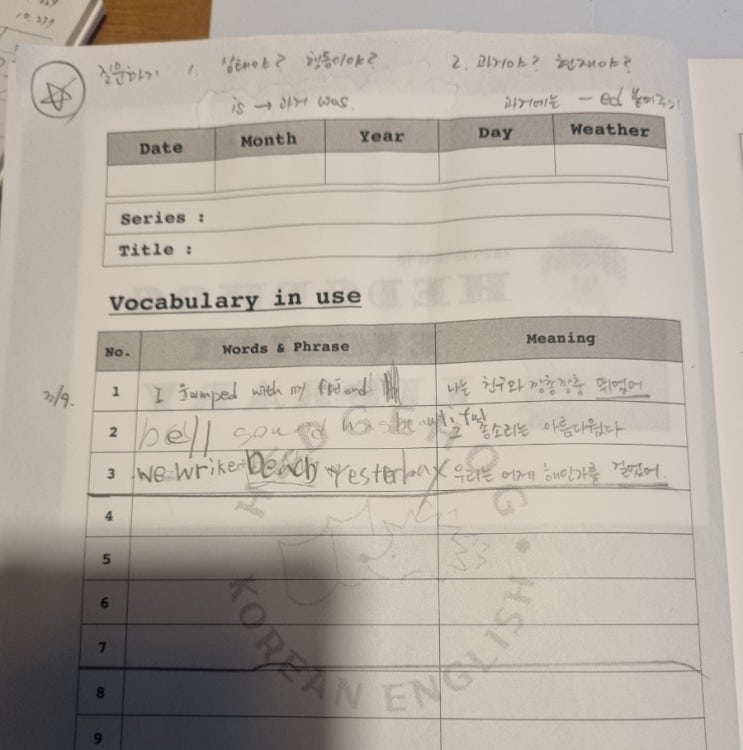 질문하기 1. 상태야? 행동이야? 2. 과거야? 현재야?
is → 과거 was. 과거에는 - ed 붙여주기
Date Month Year Day Weather
Series :
Title :
Vocabulary in use
No. Words & Phrase Meaning
3/9. 1 I jumped with my friend 나는 친구와 깡충깡충 뛰었어
2 bell sound was beautiful 그 종소리는 아름다웠다
3 we Beach yesterday 우리는 어제 해안가를 걸었어.
4
5
6
7
8
9
KOREAN ENGLISH